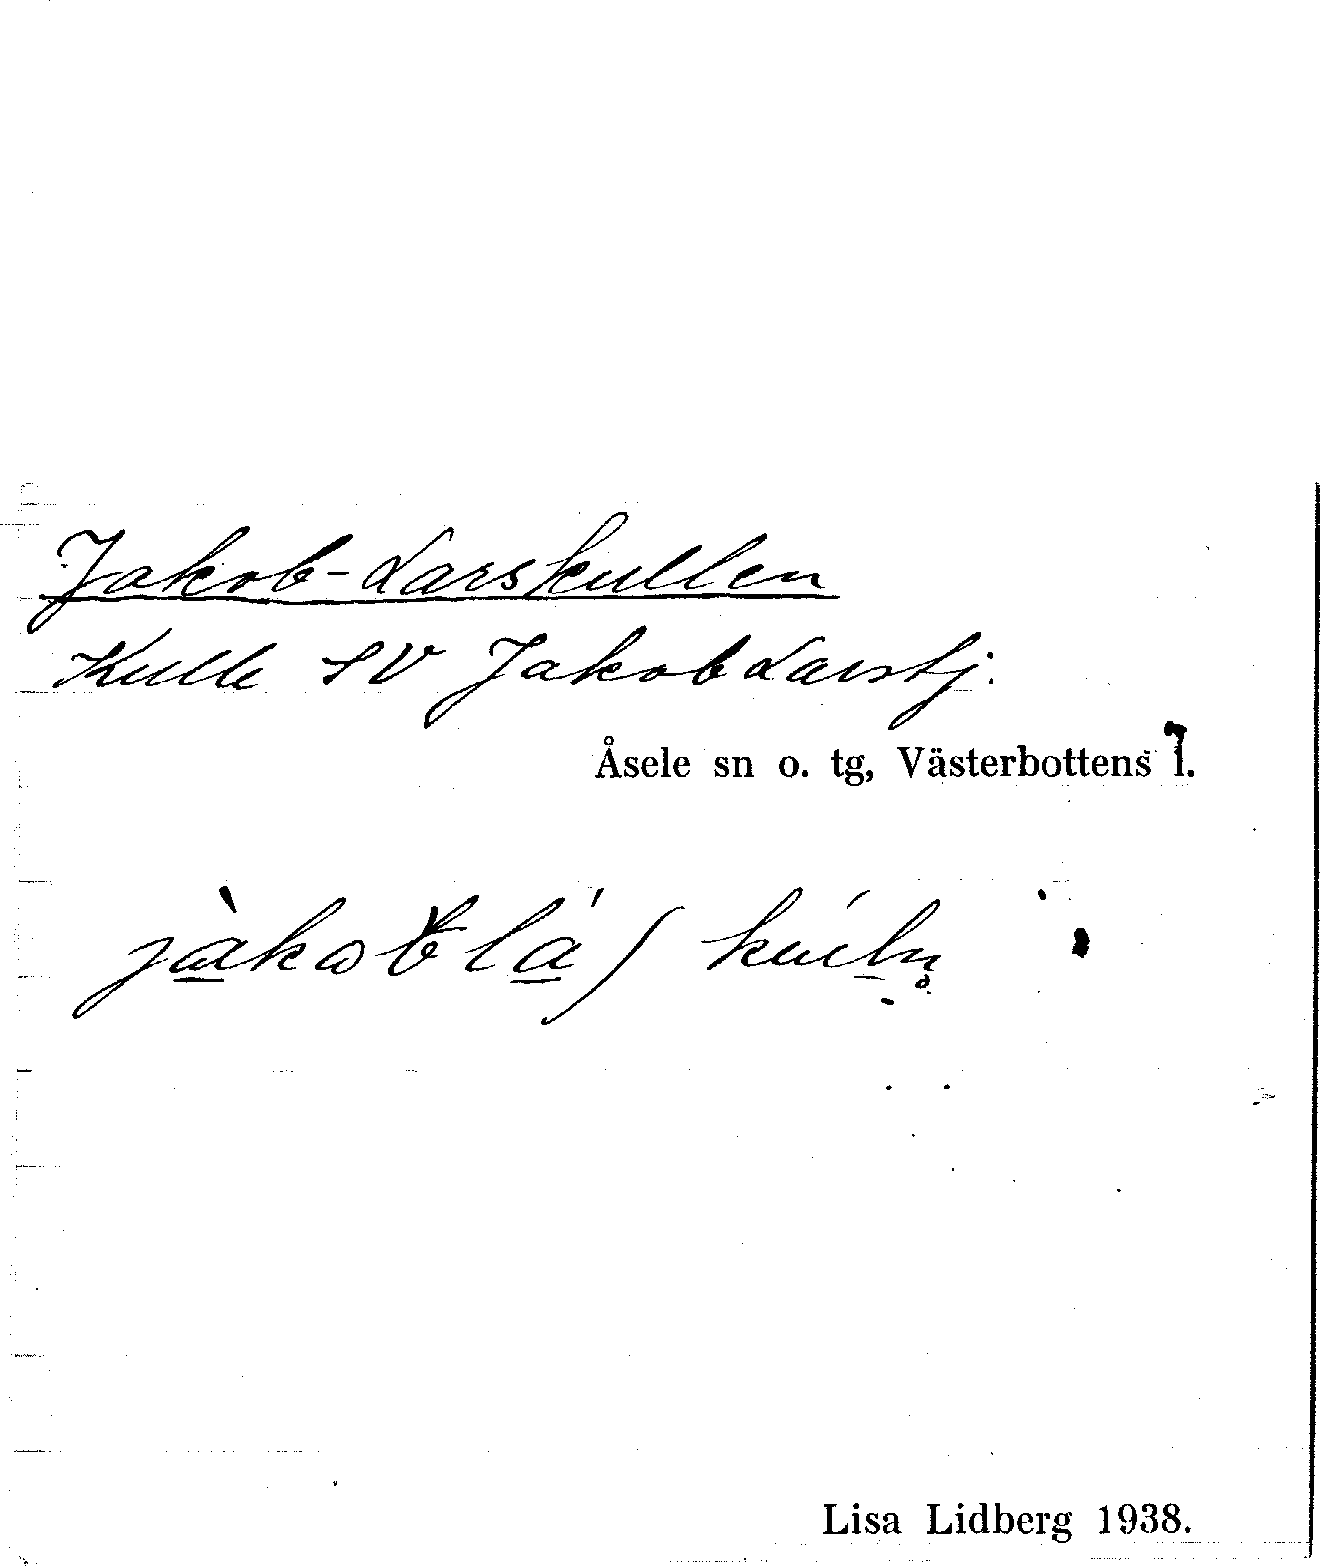 Jakob-Larskullen
Kulle SV JakobLarstj.
Åsele sn o. tg, Västerbottens l.
Lisa Lidberg 1938.